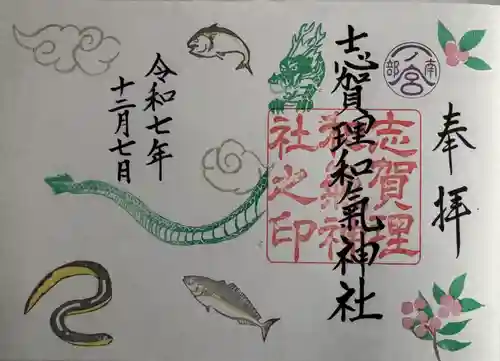 奉拝
志賀理和氣神社
志賀理
和氣神
社之印
一ノ宮
南部
令和七年
十二月七日